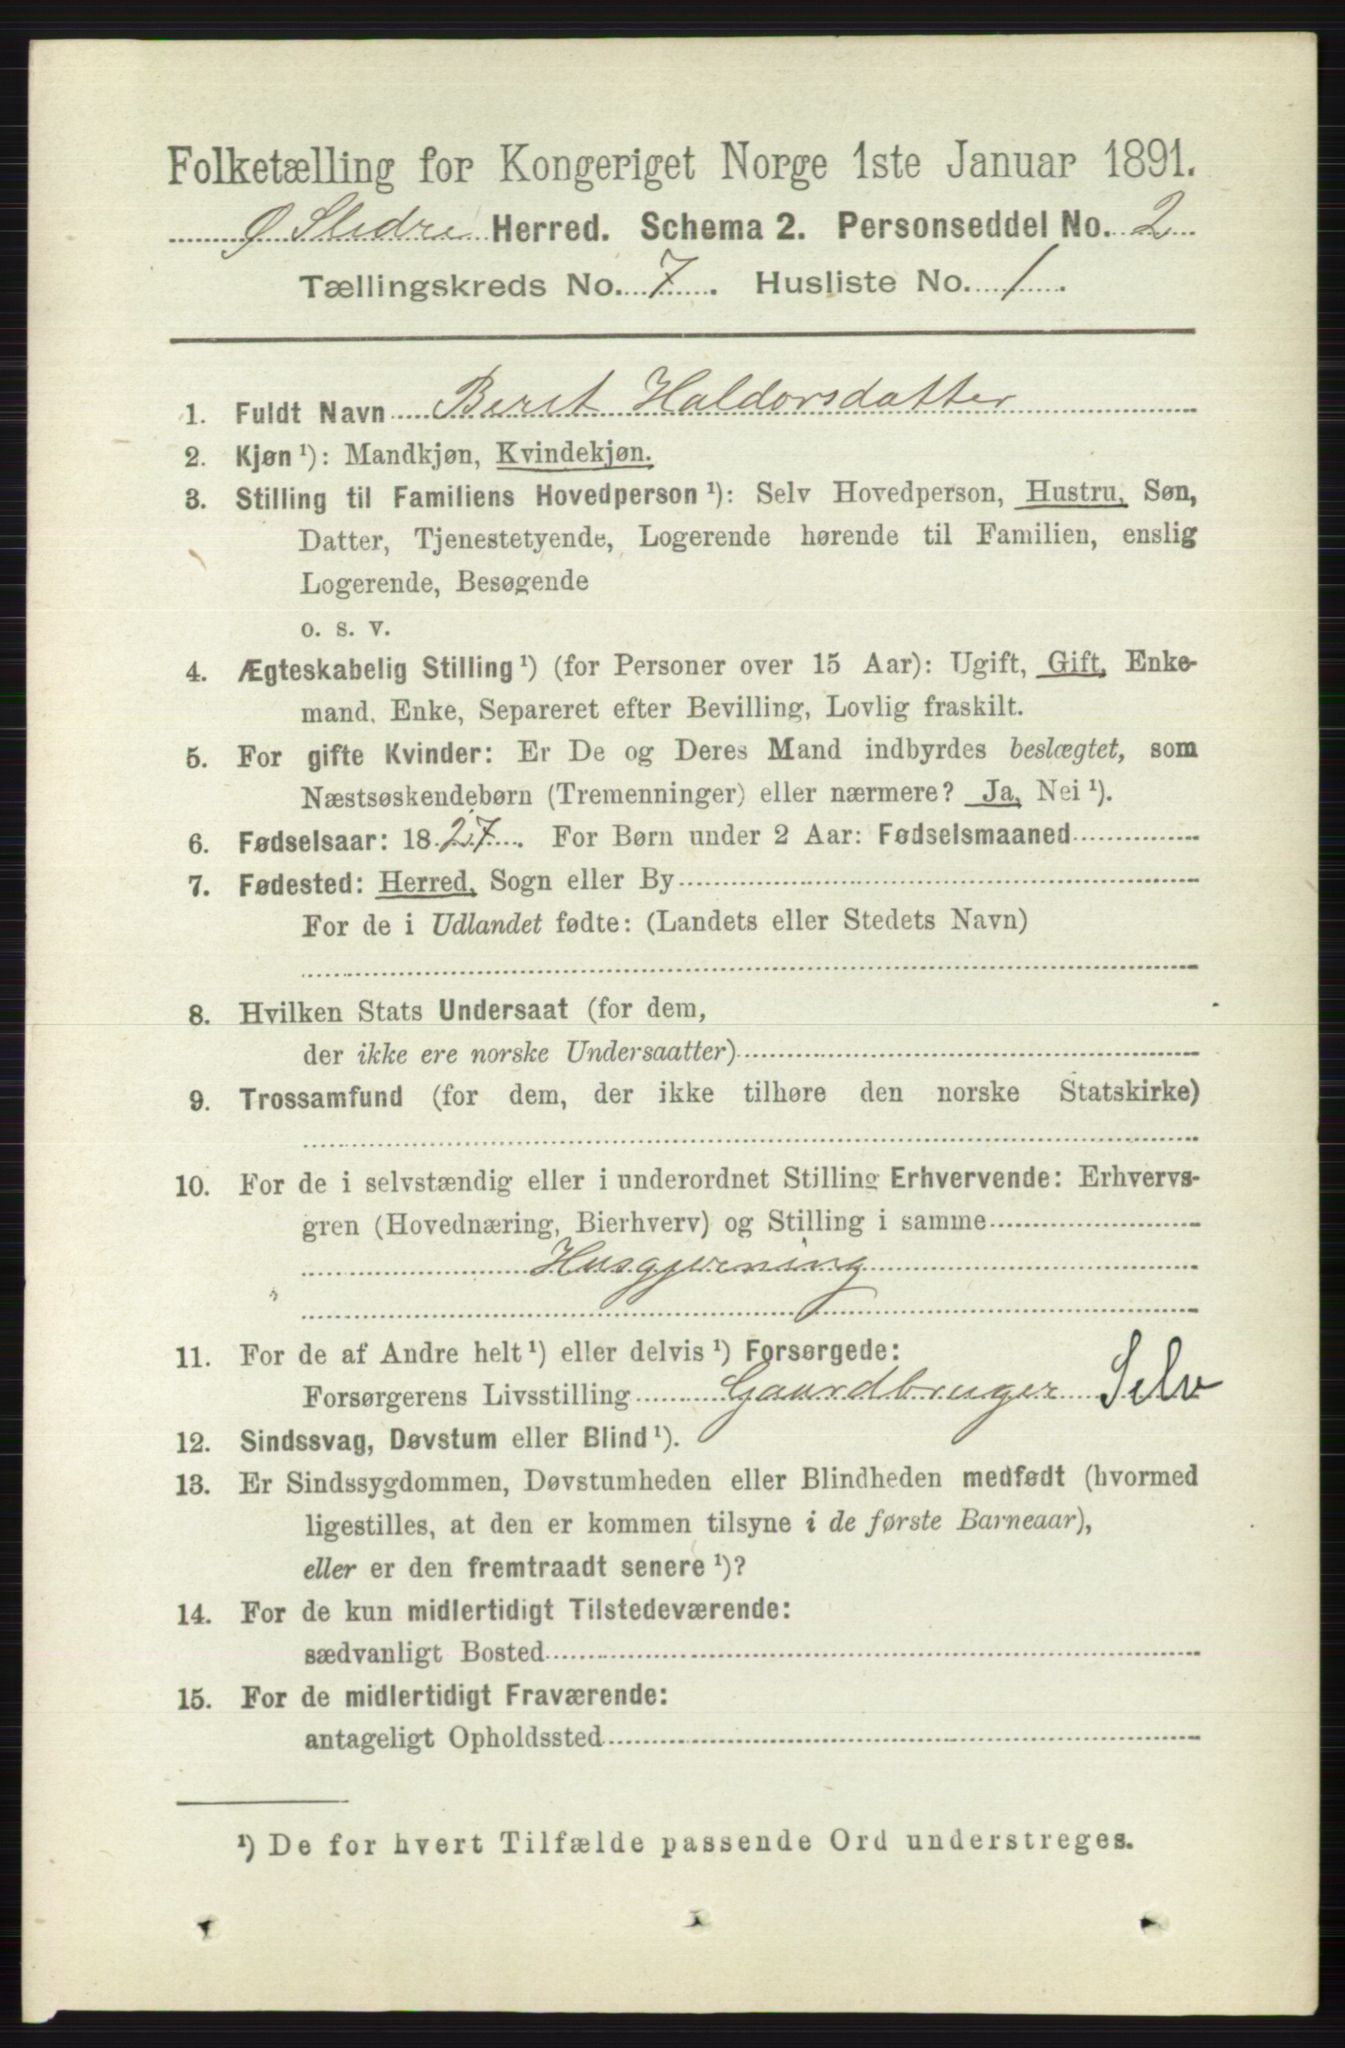 Folketælling for Kongeriget Norge 1ste Januar 1891.
Ø Slidre Herred. Schema 2. Personseddel No. 2
Tællingskreds No. 7. Husliste No. 1.
1. Fuldt Navn Berit Haldorsdatter
2. Kjøn ¹): Mandkjøn, Kvindekjøn.
3. Stilling til Familiens Hovedperson ¹): Selv Hovedperson, Hustru, Søn,
Datter, Tjenestetyende, Logerende hørende til Familien, enslig
Logerende, Besøgende
o. s. v.
4. Ægteskabelig Stilling ¹) (for Personer over 15 Aar): Ugift, Gift, Enke-
mand, Enke, Separeret efter Bevilling, Lovlig fraskilt.
5. For gifte Kvinder: Er De og Deres Mand indbyrdes beslægtet, som
Næstsøskendebørn (Tremenninger) eller nærmere? Ja, Nei ¹).
6. Fødselsaar: 1827. For Børn under 2 Aar: Fødselsmaaned
7. Fødested: Herred, Sogn eller By
For de i Udlandet fødte: (Landets eller Stedets Navn)
8. Hvilken Stats Undersaat (for dem,
der ikke ere norske Undersaatter)
9. Trossamfund (for dem, der ikke tilhøre den norske Statskirke)
10. For de i selvstændig eller i underordnet Stilling Erhvervende: Erhvervs-
gren (Hovednæring, Bierhverv) og Stilling i samme
Husgjerning
11. For de af Andre helt ¹) eller delvis ¹) Forsørgede:
Forsørgerens Livsstilling Gaardbruger Selv
12. Sindssvag, Døvstum eller Blind ¹).
13. Er Sindssygdommen, Døvstumheden eller Blindheden medfødt (hvormed
ligestilles, at den er kommen tilsyne i de første Barneaar),
eller er den fremtraadt senere ¹)?
14. For de kun midlertidigt Tilstedeværende:
sædvanligt Bosted
15. For de midlertidigt Fraværende:
antageligt Opholdssted
¹) De for hvert Tilfælde passende Ord understreges.